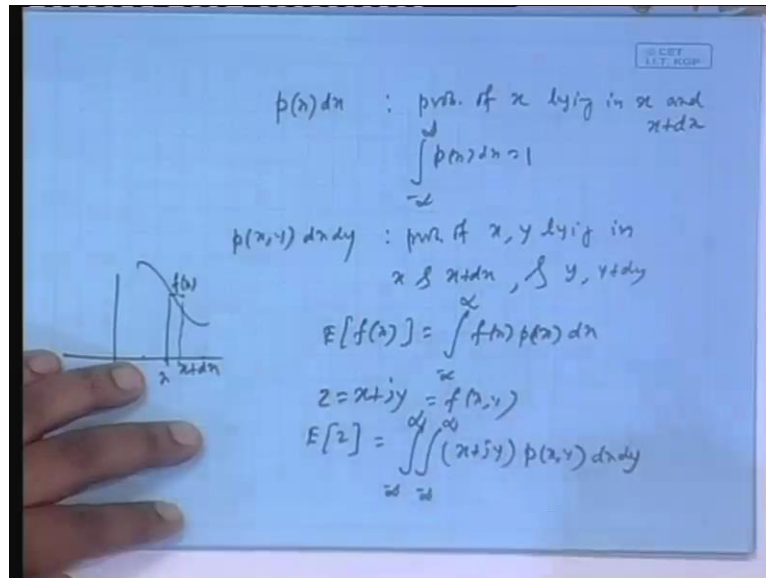 © CET
I.I.T. KGP
p(x) dx : prob. of x lying in x and
x+dx
∫_{-∞}^{∞} p(x) dx = 1
p(x,y) dx dy : prob. of x, y lying in
x & x+dx, & y, y+dy
f(x)
x x+dx
E[f(x)] = ∫_{-∞}^{∞} f(x) p(x) dx
z = x+jy = f(x,y)
E[z] = ∫_{-∞}^{∞} ∫_{-∞}^{∞} (x+jy) p(x,y) dx dy